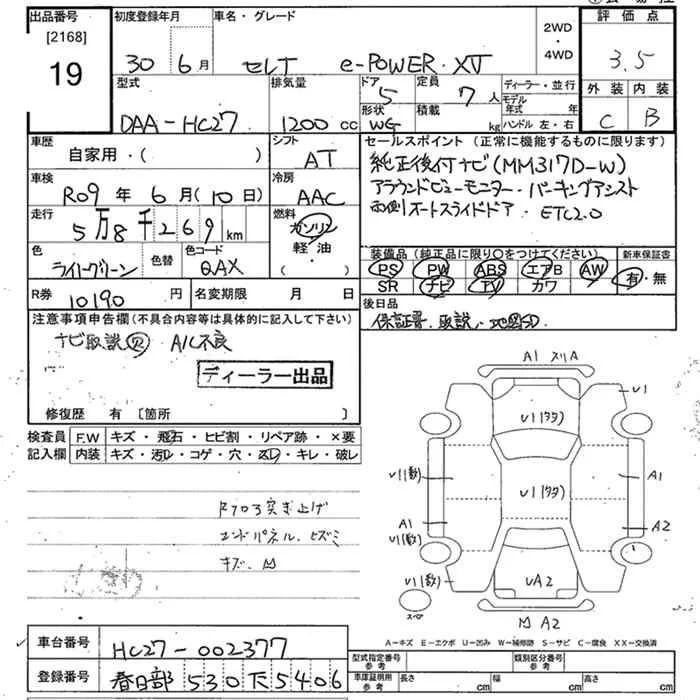 出品番号 初度登録年月 車名・グレード 2WD・4WD 評価点
[2168]
19
30 6月 セレナ e-POWER・XV 3.5
型式 排気量 ドア 5 定員 7人 ディーラー・並行 外装 内装
DAA-HC27 1200cc 形状 WG 積載 kg モデル年式 年 ハンドル 左・右 C B
車歴 自家用・( ) シフト AT
セールスポイント (正常に機能するものに限ります)
純正後付ナビ(MM317D-W)
アラウンドビューモニター・パーキングアシスト
両側オートスライドドア・ETC2.0
車検 R09年 6月(10日) 冷房 AAC
走行 5万8千269km 燃料 ガソリン 軽・油 ( )
色 ライトグリーン 色替 色コード QAX
装備品 (純正品に限り○をつけてください) 新車保証書
PS PW ABS エアB AW 有・無
SR ナビ TV カワ
R券 10190円 名変期限 月 日
後日品 保証書.取説.地図SD
注意事項申告欄(不具合内容等は具体的に記入して下さい)
ナビ取説 A/C不良
ディーラー出品
修復歴 有 [箇所 ]
検査員 F.W キズ・飛石・ヒビ割・リペア跡・×要
記入欄 内装 キズ・汚レ・コゲ・穴・スレ・キレ・破レ
突き上げ
エンドパネル.ヒズミ
キズ.
A1 スリA
U1
U1(タタ)
U1(数) U1(タタ) A1
A1 A2
U1(数)
U1(数) UA2
スペア
A2
A-キズ E-エクボ U-凹み W-補修跡 S-サビ C-腐食 XX-交換済
車台番号 HC27-002377
型式指定番号 参考 類別区分番号 参考
登録番号 春日部 530 5406
車庫証明用 参考 長さ cm 幅 cm 高さ cm